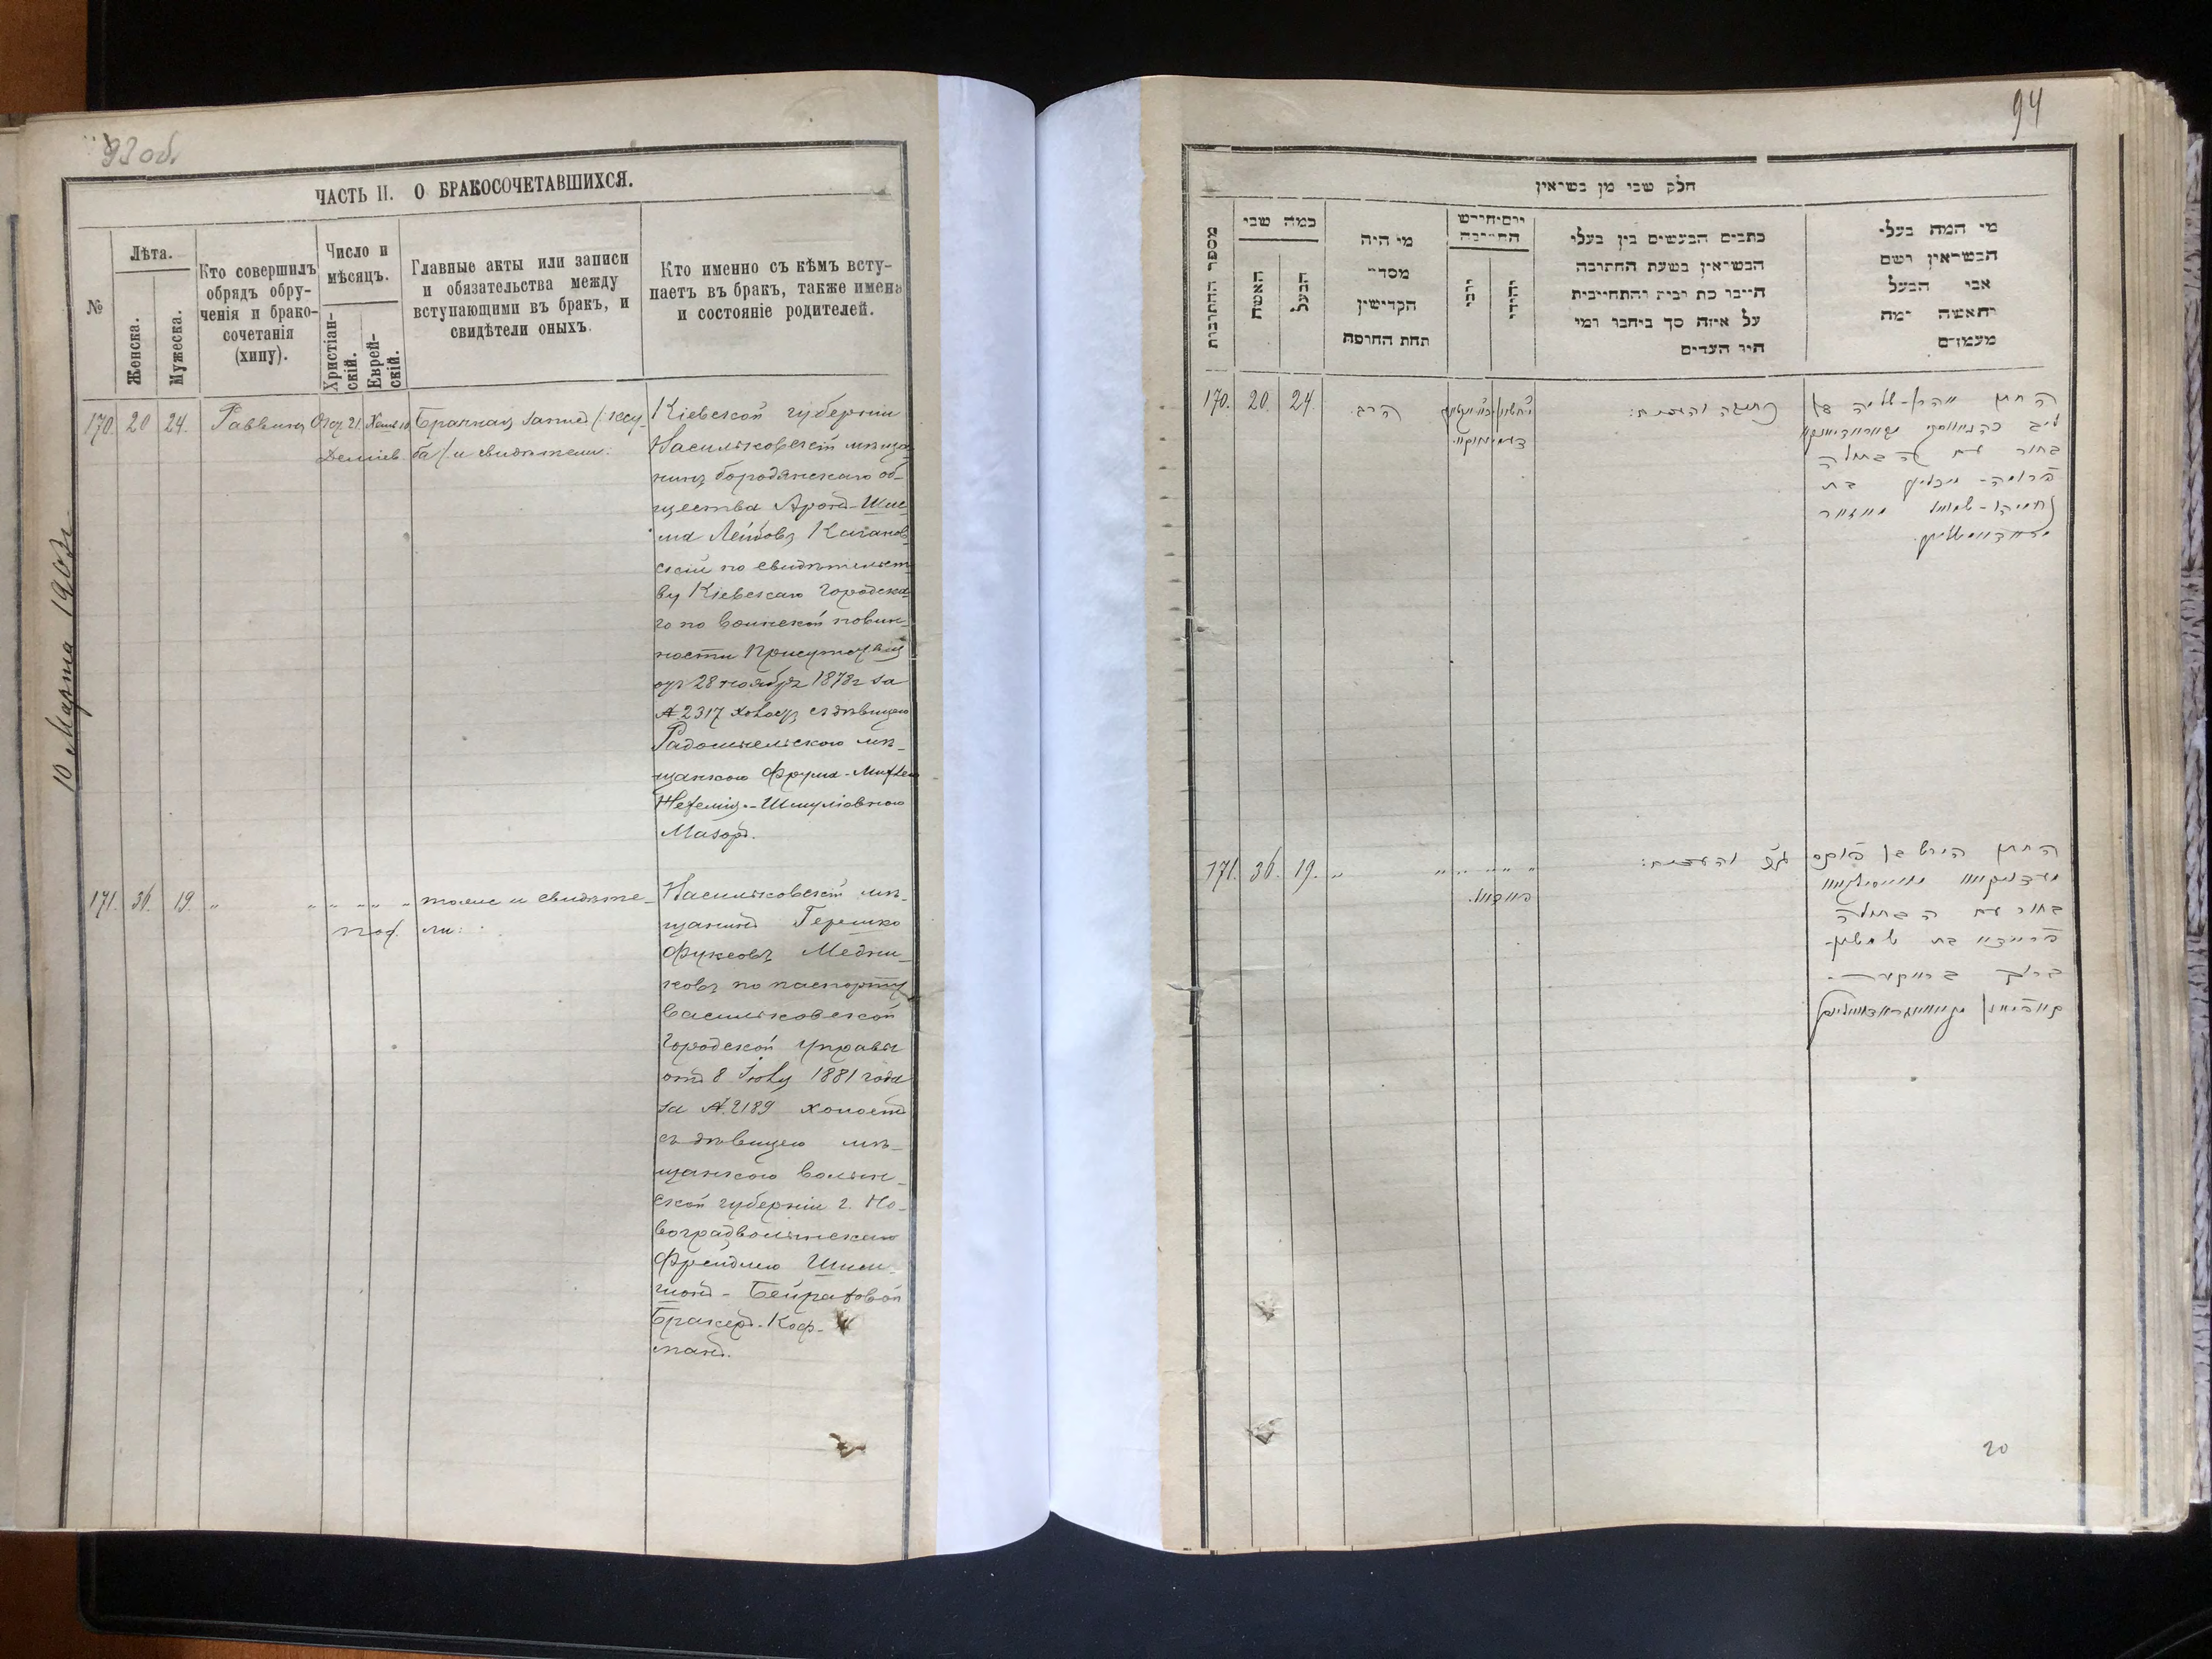 93 об.
ЧАСТЬ II. О БРАКОСОЧЕТАВШИХСЯ.
№
Лѣта.
Женска.
Мужеска.
Кто совершилъ
обрядъ обру-
ченія и брако-
сочетанія
(хипу).
Число и
мѣсяцъ.
Христіан-
скій.
Еврей-
скій.
Главные акты или записи
и обязательства между
вступающими въ бракъ, и
свидѣтели оныхъ.
Кто именно съ кѣмъ всту-
паетъ въ бракъ, также имена
и состояніе родителей.
170. 20 24. Раввинъ Окт. 21.
Деміев
Брачная запись (: ксу-
ба :) и свидѣтели:
Кіевской губерніи
Васильковскій мѣща-
нинъ бородянскаго об-
щества Аронъ-Шле-
ма Лейбовъ Каганов-
скій по свидѣтельст-
ву Кіевскаго городска-
го по воинской повин-
ности Присутствія
отъ 28 ноября 1878 г за
№ 2317 холостъ съ дѣвицею
Радомысльскою мѣ-
щанкою Фрума-
Нехемія-Шмулiовною
Мазоръ.
171. 36. 19. " " " " " тоже и свидѣте-
ли:
Васильковскій мѣ-
щанинъ Гершко
Фуксовъ Медни-
ковъ по паспорту
Васильковской
городской управы
отъ 8 Іюля 1881 года
за № 2189 холостъ
съ дѣвицею мѣ-
щанкою Волын-
ской губерніи г. Но-
воградволынскаго
Фрейдлею Шим-
шонъ-
Коф-
манъ.
10 Марта 190
94
חלק שני מן נשואין
מספר החתונות
כמה שני
האשה
הבעל
מי היה
מסדר
הקדישין
תחת החופה
יום וחודש
החתונה
נוצרי
יהודי
כתבים הנעשים בין בעלי
הנשואין בשעת החתונה
היינו כת ובית והתחייבות
על איזה סך ביחבו ומי
היו העדים
מי המה בעלי
הנשואין ושם
אבי הבעל
והאשה ומה
מעמדם
170. 20. 24. הרב.
כתובה והעדים:
החתן אהרן-שלמה בן
ליב
בחור עם הבתולה
פרומה- בת
נחמיה-שמואל מאזור
171. 36. 19. " " " " "
והעדים:
החתן הירש בן פוקס
בחור עם הבתולה
בת שמשון-
קויפמאן
20